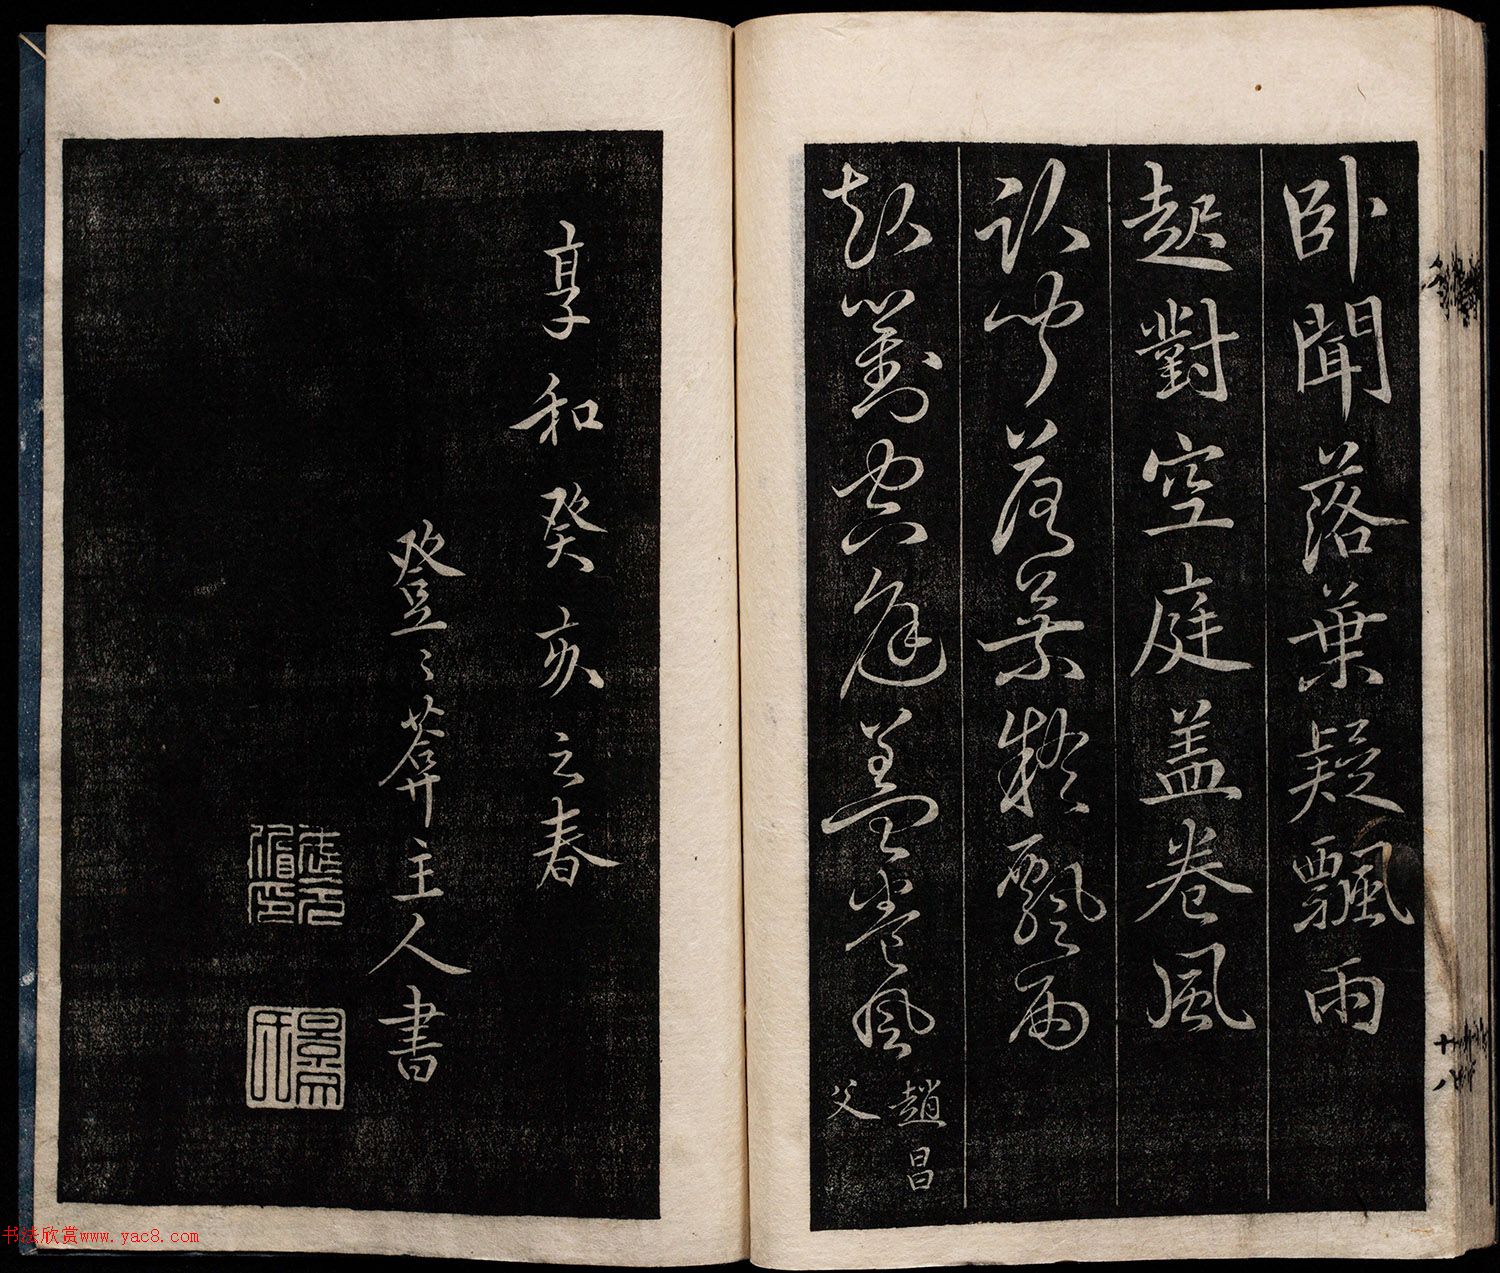 卧聞落葉疑飄雨
起對空庭盖卷風
卧聞落葉疑飄雨
起對空庭盖卷風
趙昌
父
享和癸亥之春
登〻葊主人書
十八
书法欣赏www.yac8.com